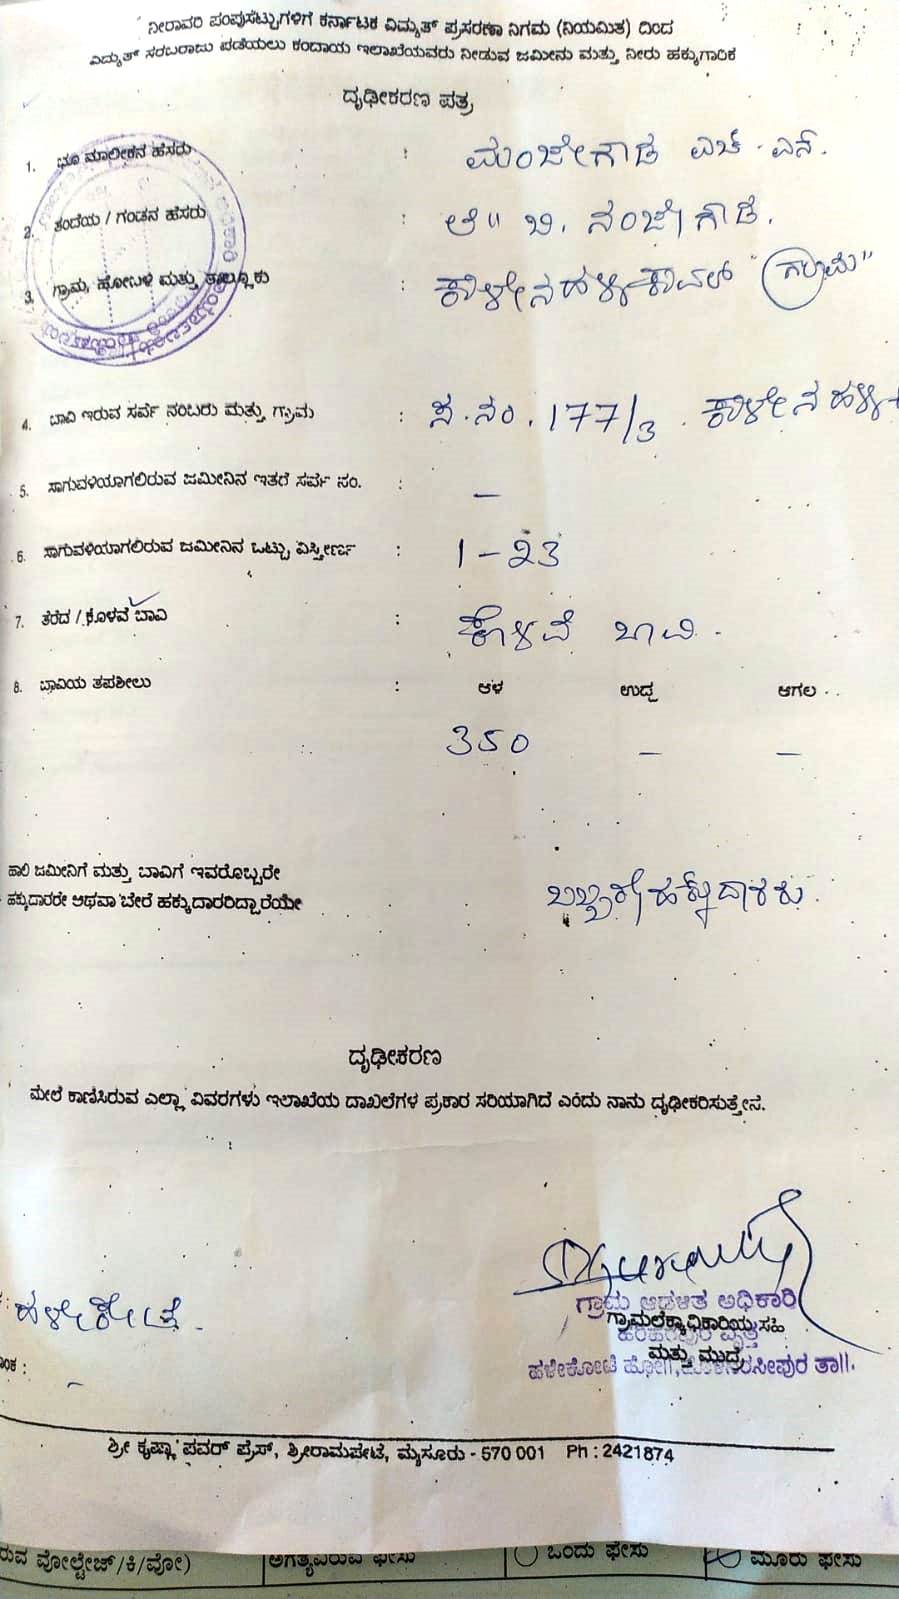 ನೀರಾವರಿ ಪಂಪುಸೆಟ್ಟುಗಳಿಗೆ ಕರ್ನಾಟಕ ವಿದ್ಯುತ್ ಪ್ರಸರಣಾ ನಿಗಮ (ನಿಯಮಿತ) ದಿಂದ
ವಿದ್ಯುತ್ ಸರಬರಾಜು ಪಡೆಯಲು ಕಂದಾಯ ಇಲಾಖೆಯವರು ನೀಡುವ ಜಮೀನು ಮತ್ತು ನೀರು ಹಕ್ಕುಗಾರಿಕೆ
ದೃಢೀಕರಣ ಪತ್ರ
1. ಭೂ ಮಾಲೀಕನ ಹೆಸರು : ಮಂಜೇಗೌಡ ಎಚ್. ಎನ್.
2. ತಂದೆಯ / ಗಂಡನ ಹೆಸರು : ಬಿ. ನಂಜೇಗೌಡ.
3. ಗ್ರಾಮ, ಹೋಬಳಿ ಮತ್ತು ತಾಲ್ಲೂಕು : ಕಾಳೇನಹಳ್ಳಿಕಾವಲ್ "ಗ್ರಾಮ"
4. ಬಾವಿ ಇರುವ ಸರ್ವೆ ನಂಬರು ಮತ್ತು ಗ್ರಾಮ : ಸ.ನಂ. 177/3 . ಕಾಳೇನಹಳ್ಳಿ
5. ಸಾಗುವಳಿಯಾಗಲಿರುವ ಜಮೀನಿನ ಇತರೆ ಸರ್ವೆ ನಂ. : —
6. ಸಾಗುವಳಿಯಾಗಲಿರುವ ಜಮೀನಿನ ಒಟ್ಟು ವಿಸ್ತೀರ್ಣ : 1-23
7. ತೆರೆದ / ಕೊಳವೆ ಬಾವಿ : ಕೊಳವೆ ಬಾವಿ.
8. ಬಾವಿಯ ತಪಶೀಲು : ಆಳ ಉದ್ದ ಅಗಲ
350 — —
ಹಾಲಿ ಜಮೀನಿಗೆ ಮತ್ತು ಬಾವಿಗೆ ಇವರೊಬ್ಬರೇ
ಹಕ್ಕುದಾರರೇ ಅಥವಾ ಬೇರೆ ಹಕ್ಕುದಾರರಿದ್ದಾರೆಯೇ ಒಬ್ಬರೇ ಹಕ್ಕುದಾರರು.
ದೃಢೀಕರಣ
ಮೇಲೆ ಕಾಣಿಸಿರುವ ಎಲ್ಲಾ ವಿವರಗಳು ಇಲಾಖೆಯ ದಾಖಲೆಗಳ ಪ್ರಕಾರ ಸರಿಯಾಗಿದೆ ಎಂದು ನಾನು ದೃಢೀಕರಿಸುತ್ತೇನೆ.
ಗ್ರಾಮ ಆಡಳಿತ ಅಧಿಕಾರಿ
: ಹಳೇಕೋಟೆ.
ಗ್ರಾಮಲೆಕ್ಕಾಧಿಕಾರಿಯ ಸಹಿ
ಮತ್ತು ಮುದ್ರೆ
ಹಳೇಕೋಟೆ ಹೋ||, ತಾ||.
ಶ್ರೀ ಕೃಷ್ಣಾ ಪವರ್ ಪ್ರೆಸ್, ಶ್ರೀರಾಮಪೇಟೆ, ಮೈಸೂರು - 570 001 Ph : 2421874
ವೋಲ್ಟೇಜ್/ಕಿ/ವೋ) ಅಗತ್ಯವಿರುವ ಫೇಸು ಒಂದು ಫೇಸು ಮೂರು ಫೇಸು